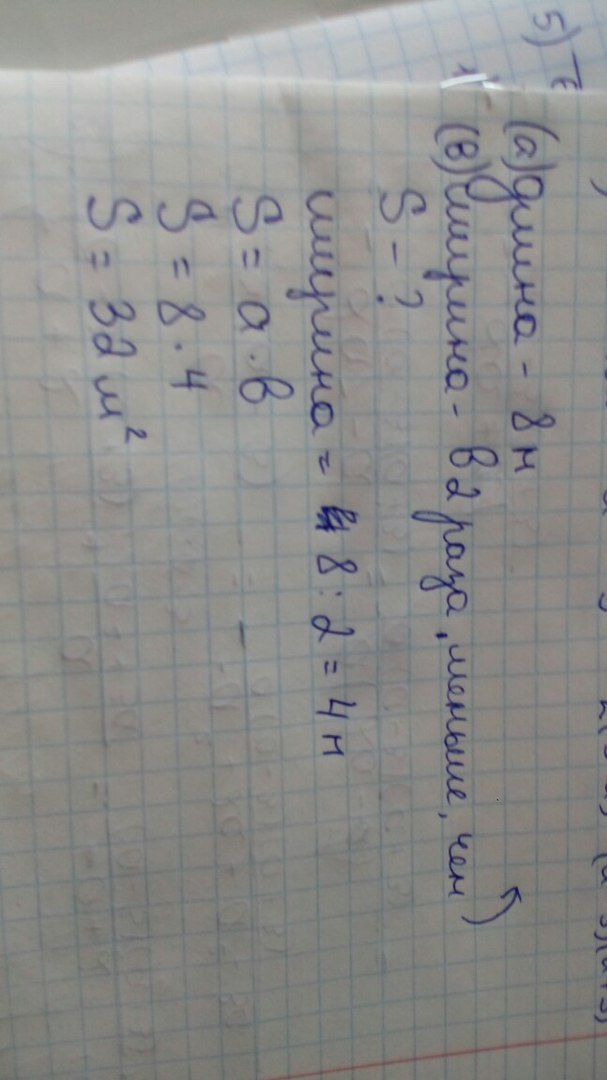 5)
(а) длина - 8м
(в) ширина - в 2 раза, меньше, чем
S - ?
ширина = 8 : 2 = 4 м
S = а · в
S = 8 · 4
S = 32 м²